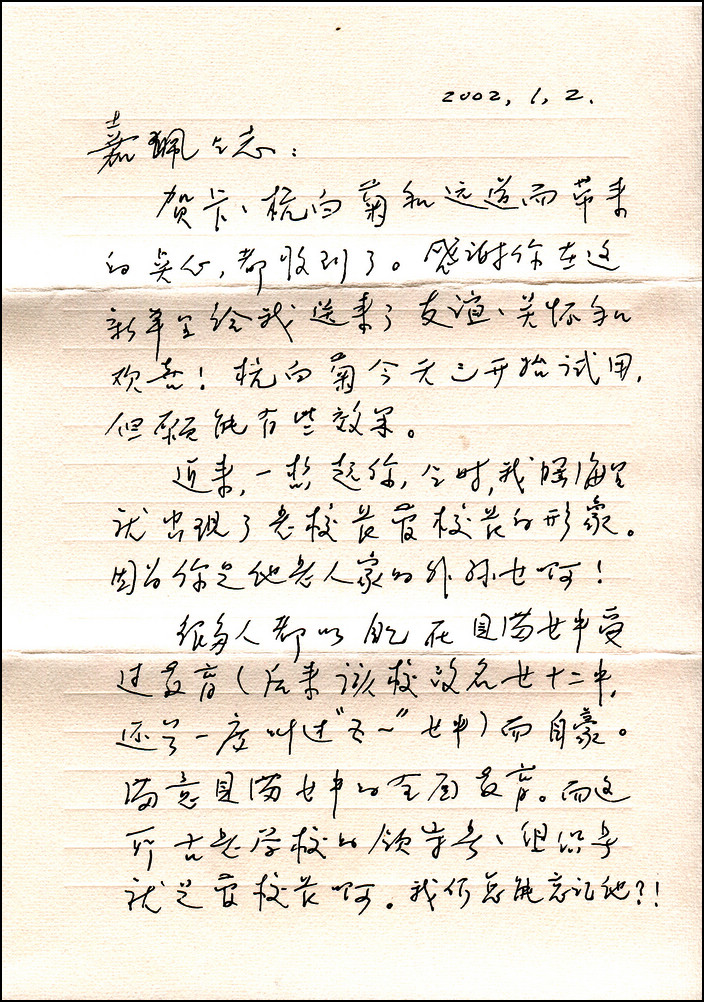 2002,1,2.
嘉珮仝志：
贺卡、杭白菊和远道而带来
的点心,都收到了。感谢你在这
新年里给我送来了友谊、关怀和
欢喜！杭白菊今天已开始试用,
但愿能有些效果。
近来,一想起你,仝时,我脑海里
就出现了老校长管校长的形象。
因为你是他老人家的外孙女啊！
很多人都以自己在贝满女中受
过教育(后来该校改名女十二中,
还曾一度叫过"五一"女中)而自豪。
满意贝满女中的全面教育。而这
所古老学校的领导者、组织者
就是管校长啊。我们怎能忘记他?!